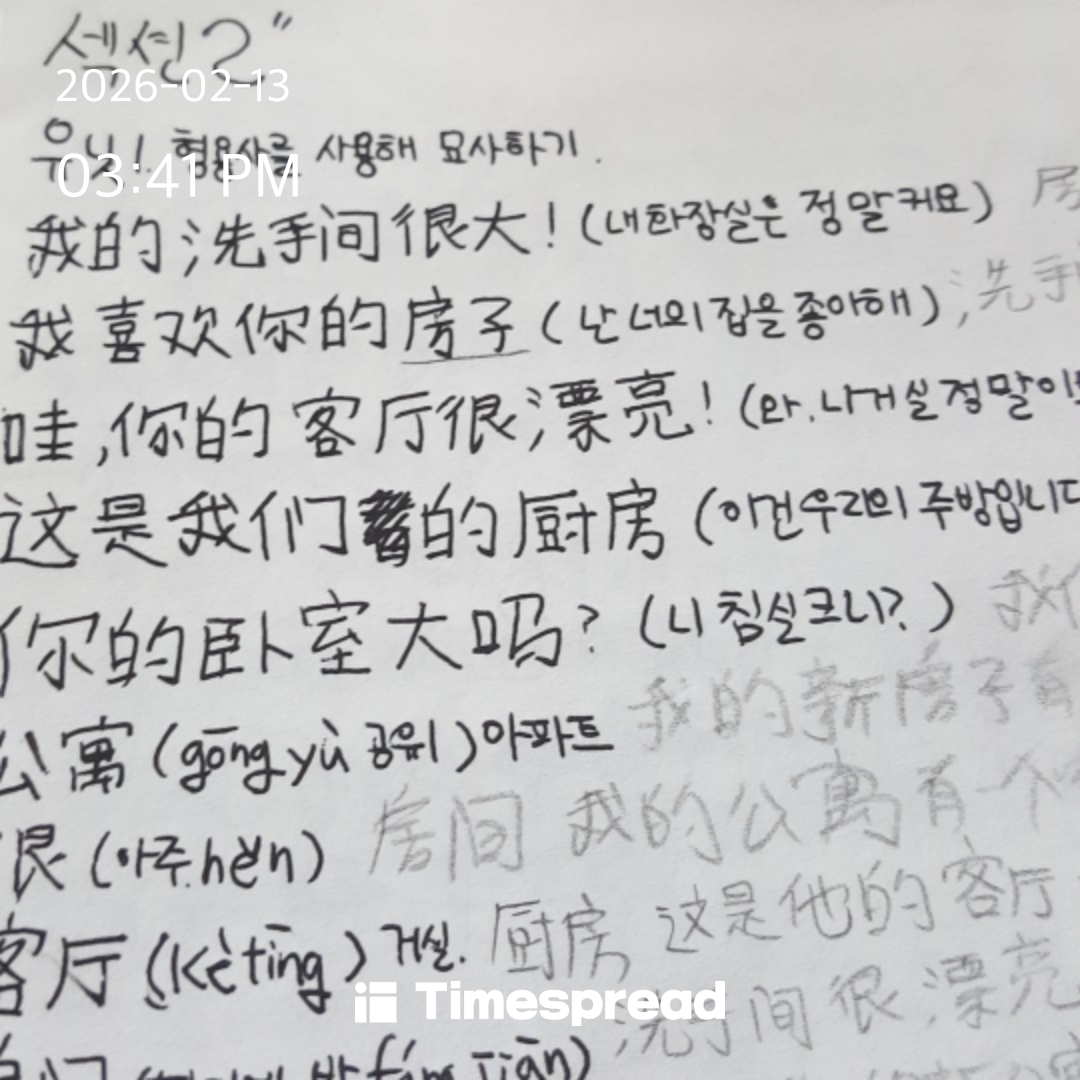 섹션2"
2026-02-13
유닛1. 형용사를 사용해 묘사하기.
03:41 PM
我的洗手间很大！(내화장실은 정말커요)
我喜欢你的房子 (난 너의 집을 좋아해) 洗手
哇,你的客厅很漂亮! (와. 니거실 정말이
这是我们的厨房 (이건우리의 주방입니다
你的卧室大吗? (니 침실크니?) 我们
我的新房子有
公寓 (gōng yù 공위) 아파트
房间 我的公寓有一个
很 (아주. hěn)
客厅 (kètīng) 거실.
厨房 这是他的客厅
Timespread
洗手间很漂亮
fáng jiān)